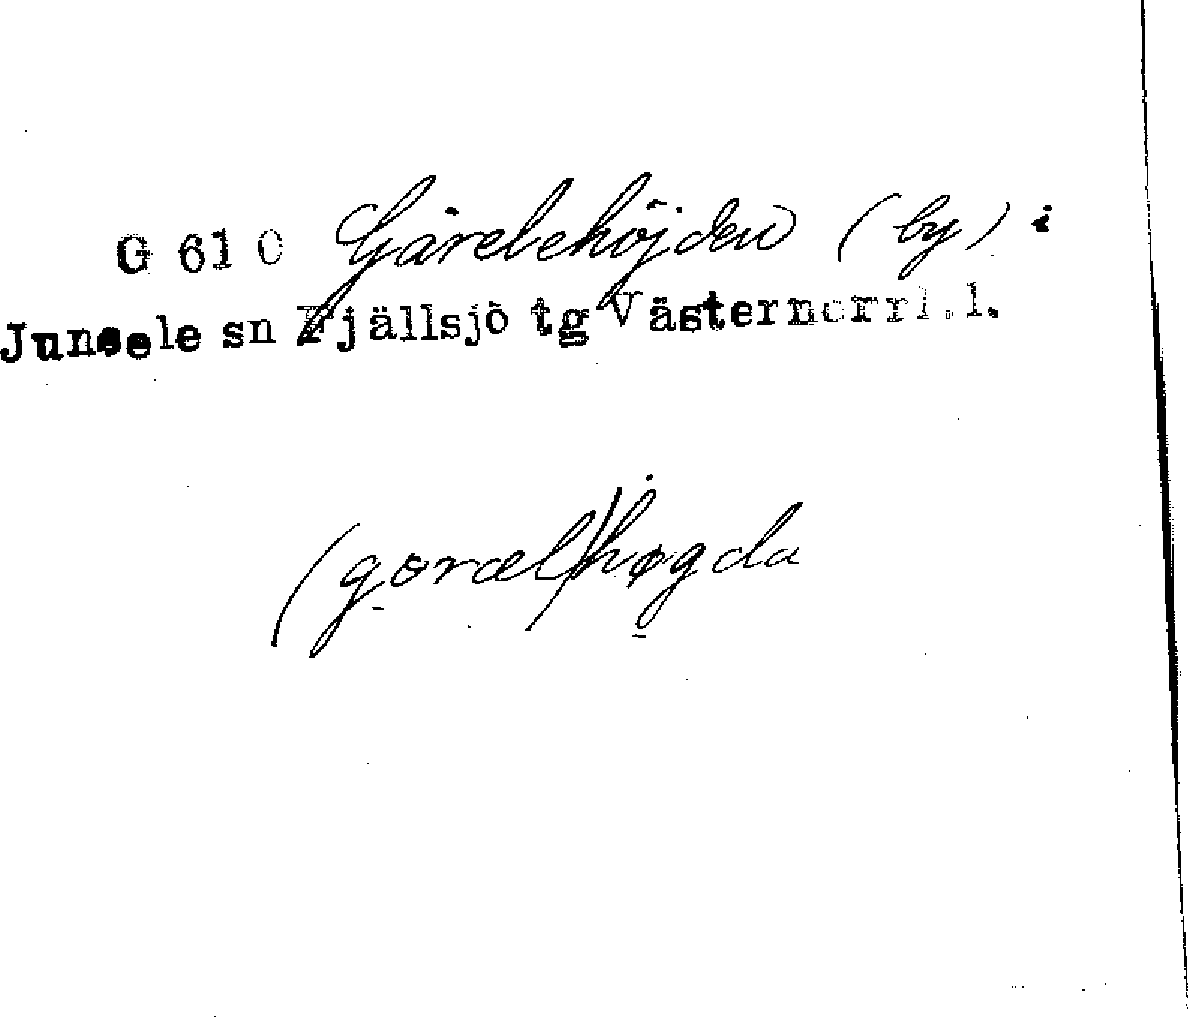 G 61 C Gårelehöjden (by) i
Junsele sn Fjällsjö tg Västernorrl.l.
(goræl)høgda